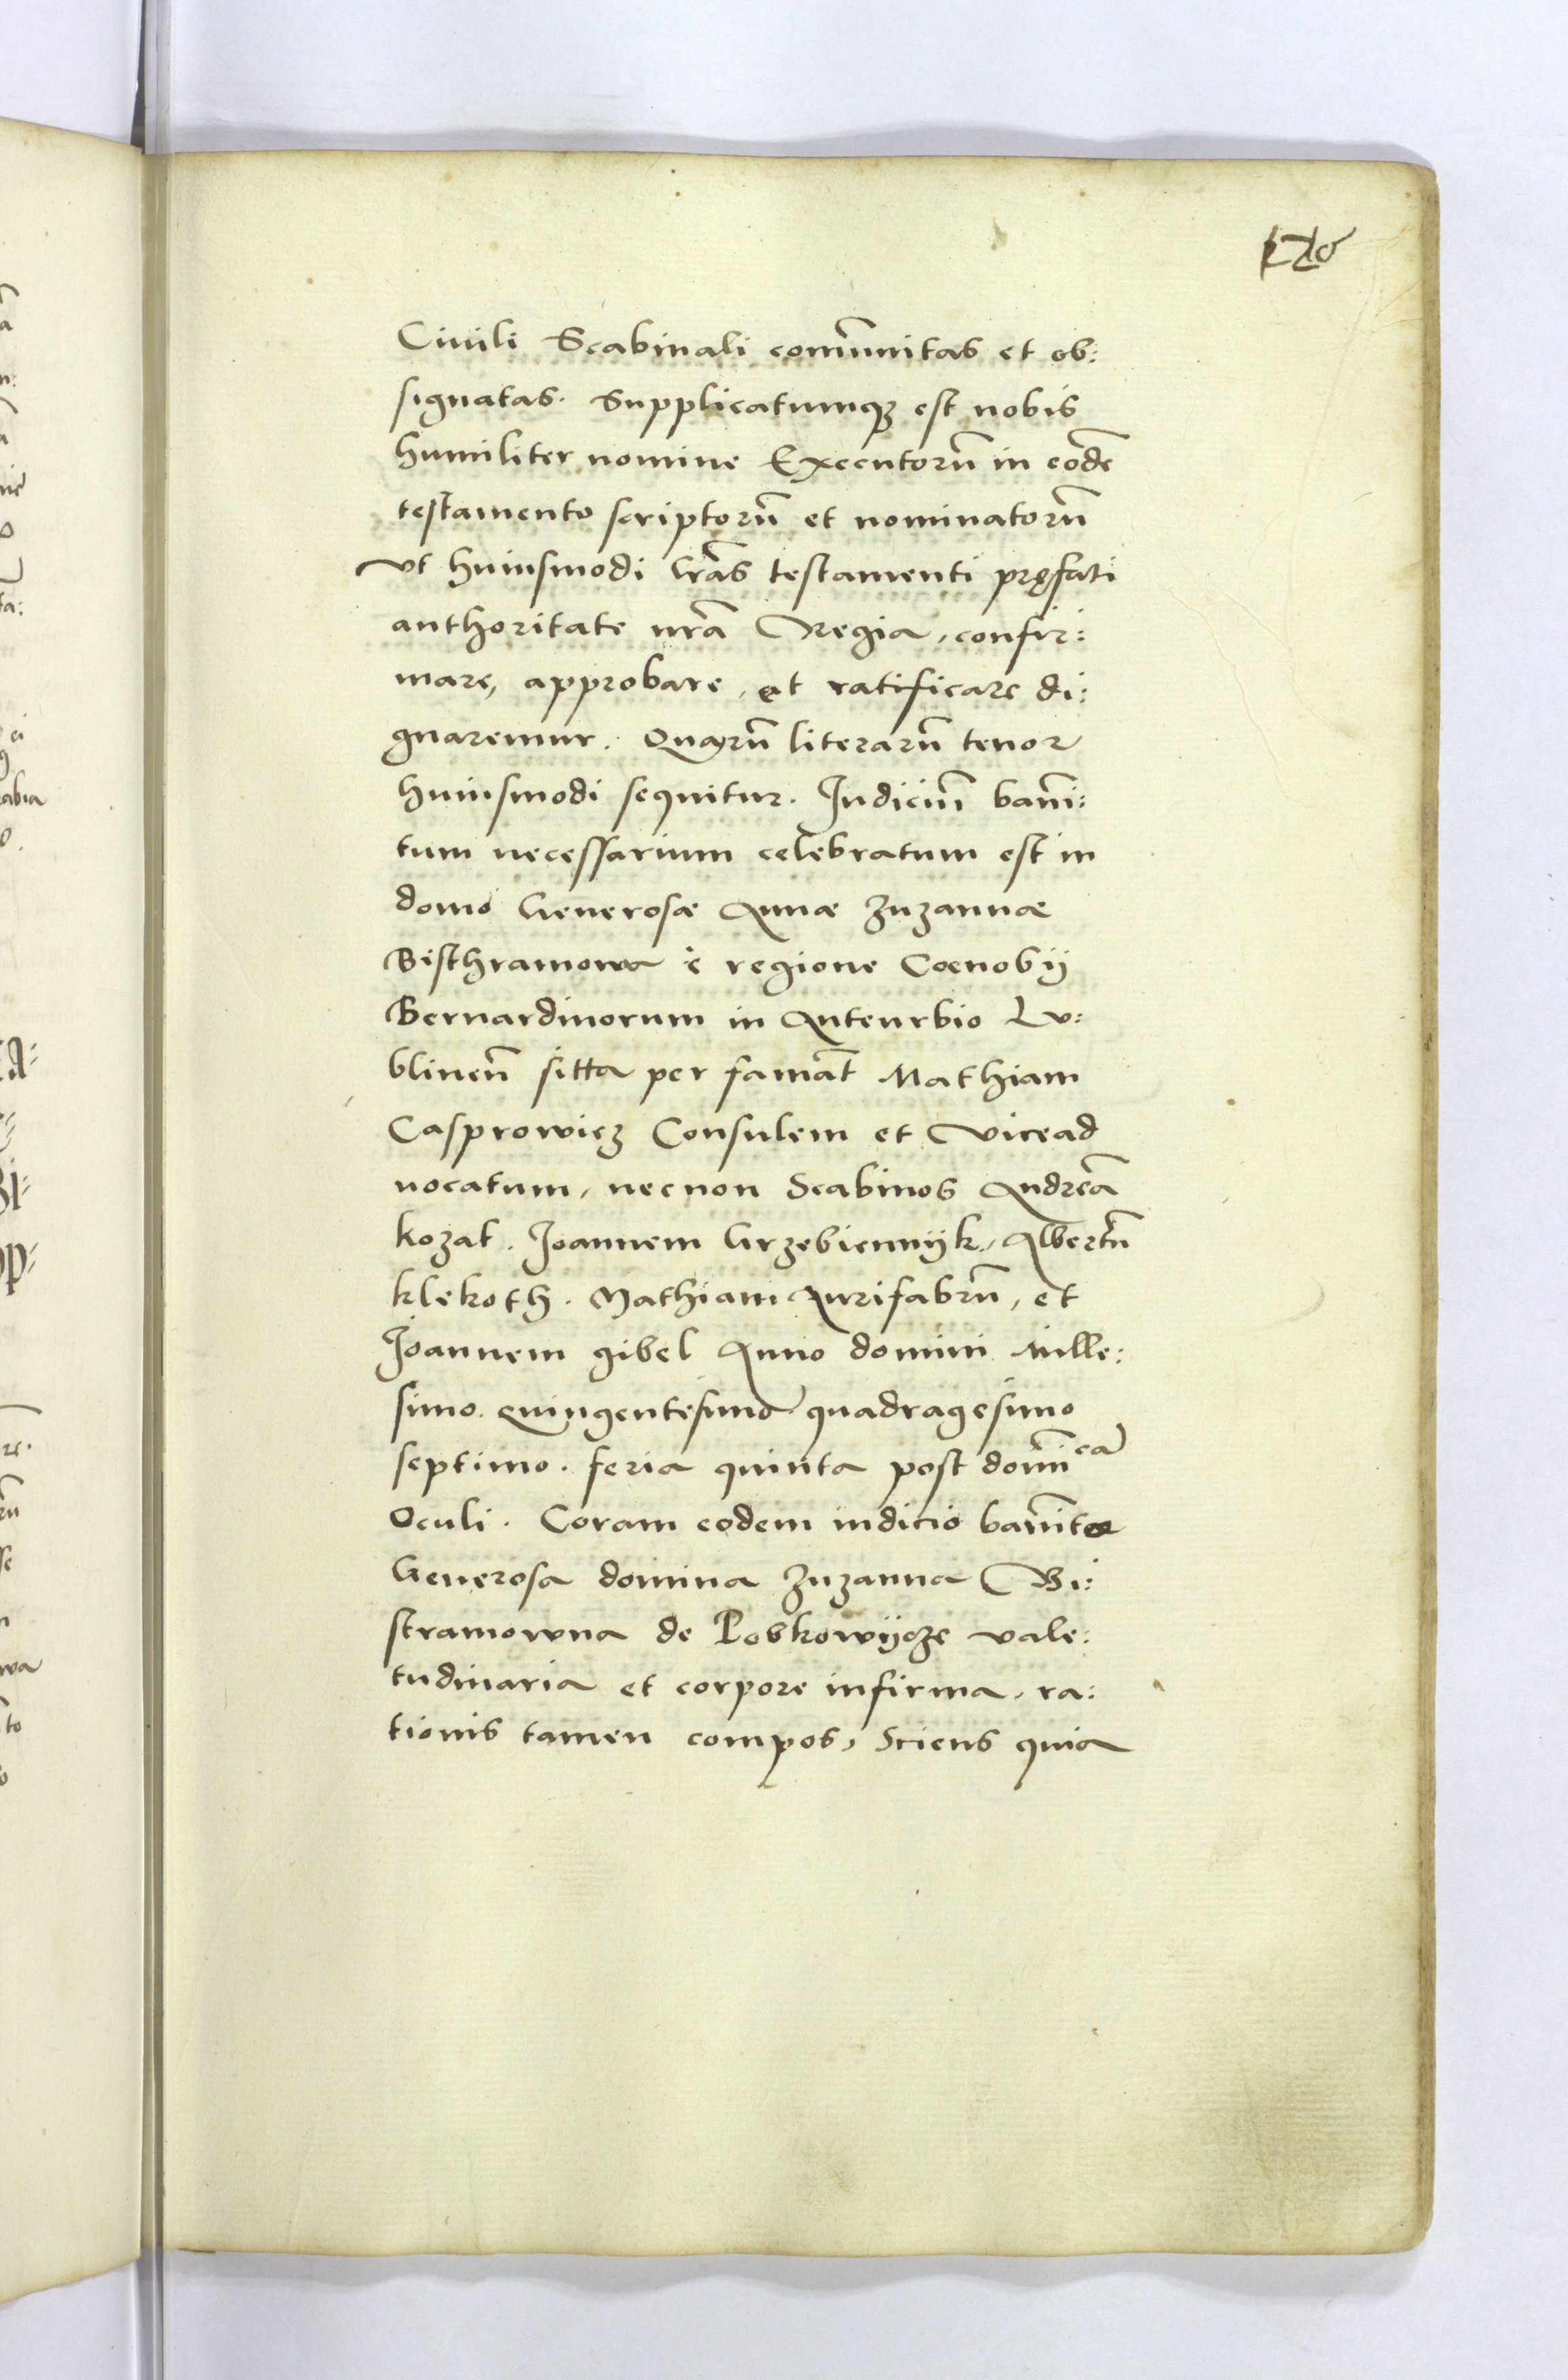 Ciuili Scabinali com̄unitas et ob:
signatas. Supplicatumqȝ est nobis
humiliter nomine Executorū in eodē
testamento scriptorū et nominatorū
vt huiusmodi lr̄as testamenti pręfati
authoritate nr̄a Regia, confir:
mare, approbare, et ratificare di:
gnaremur. Quarū literarū tenor
huiusmodi sequitur. Judiciū bañi:
tum necessarium celebratum est in
domo Generosæ Annæ Zuzannæ
Bisthramowa è regione Coenobij
Bernardinorum in Anteurbio Lu:
blineñ sitta per famāt Mathiam
Casprowicz Consulem et Vicead
uocatum, necnon Scabinos Andreā
kozat. Joannem Grzebiennijk, Albertū
klekoth. Mathiam Aurifabrū, et
Joannem gibel Anno domini Mille:
simo. quingentesimo quadragesimo
septimo. feria quinta post domīcā
Oculi. Coram eodem iudicio bañito
Generosa domina Zuzanna Bi:
stramowna de Lobkowijcze vale:
tudinaria et corpore infirma, ra:
tionis tamen compos, Sciens quia